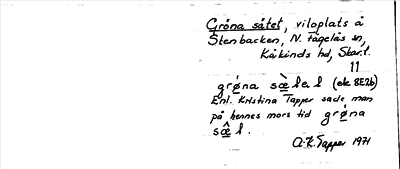 Gröna sätet, viloplats å
Stenbacken, N. Fågelås sn,
Kåkinds hd, Skar.l.
11
grǿna sæ̀ɫeɫ (ek 8E2b)
Enl. Kristina Tapper sade man
på hennes mors tid grǿna
sæ̂ɫ.
A.K. Tapper 1971